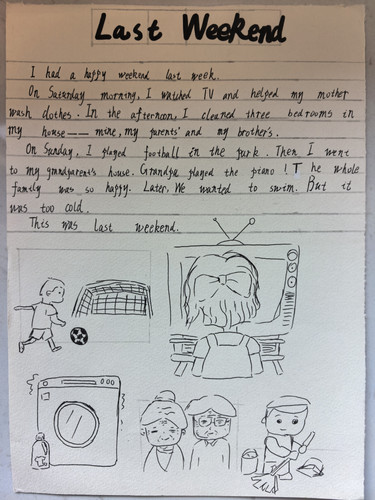 Last Weekend
I had a happy weekend last week.
On Saturday morning, I watched TV and helped my mother
wash clothes. In the afternoon, I cleaned three bedrooms in
my house——mine, my parents' and my brother's.
On Sunday, I played football in the park. Then I went
to my grandparent's house. Grandpa played the piano! The whole
family was so happy. Later, We wanted to swim. But it
was too cold.
This was last weekend.